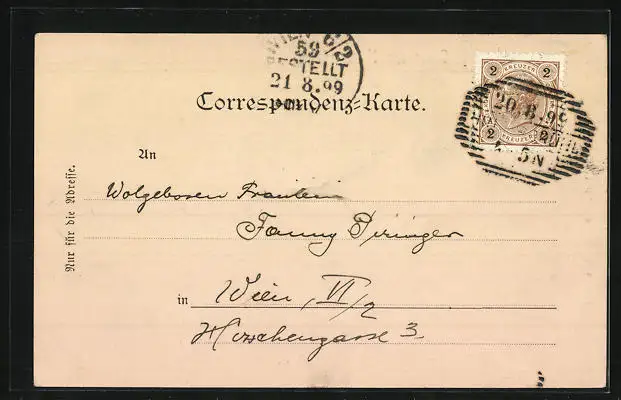 WIEN 6/2
59
BESTELLT
21 8.99
2 KREUZER 2
2 KREUZER 2
20.8.99
5N
Correspondenz-Karte.
An
Wolgeboren Fräulein
Fanny Piringer
in Wien, VI/2
Hirschengasse 3.
Nur für die Adresse.